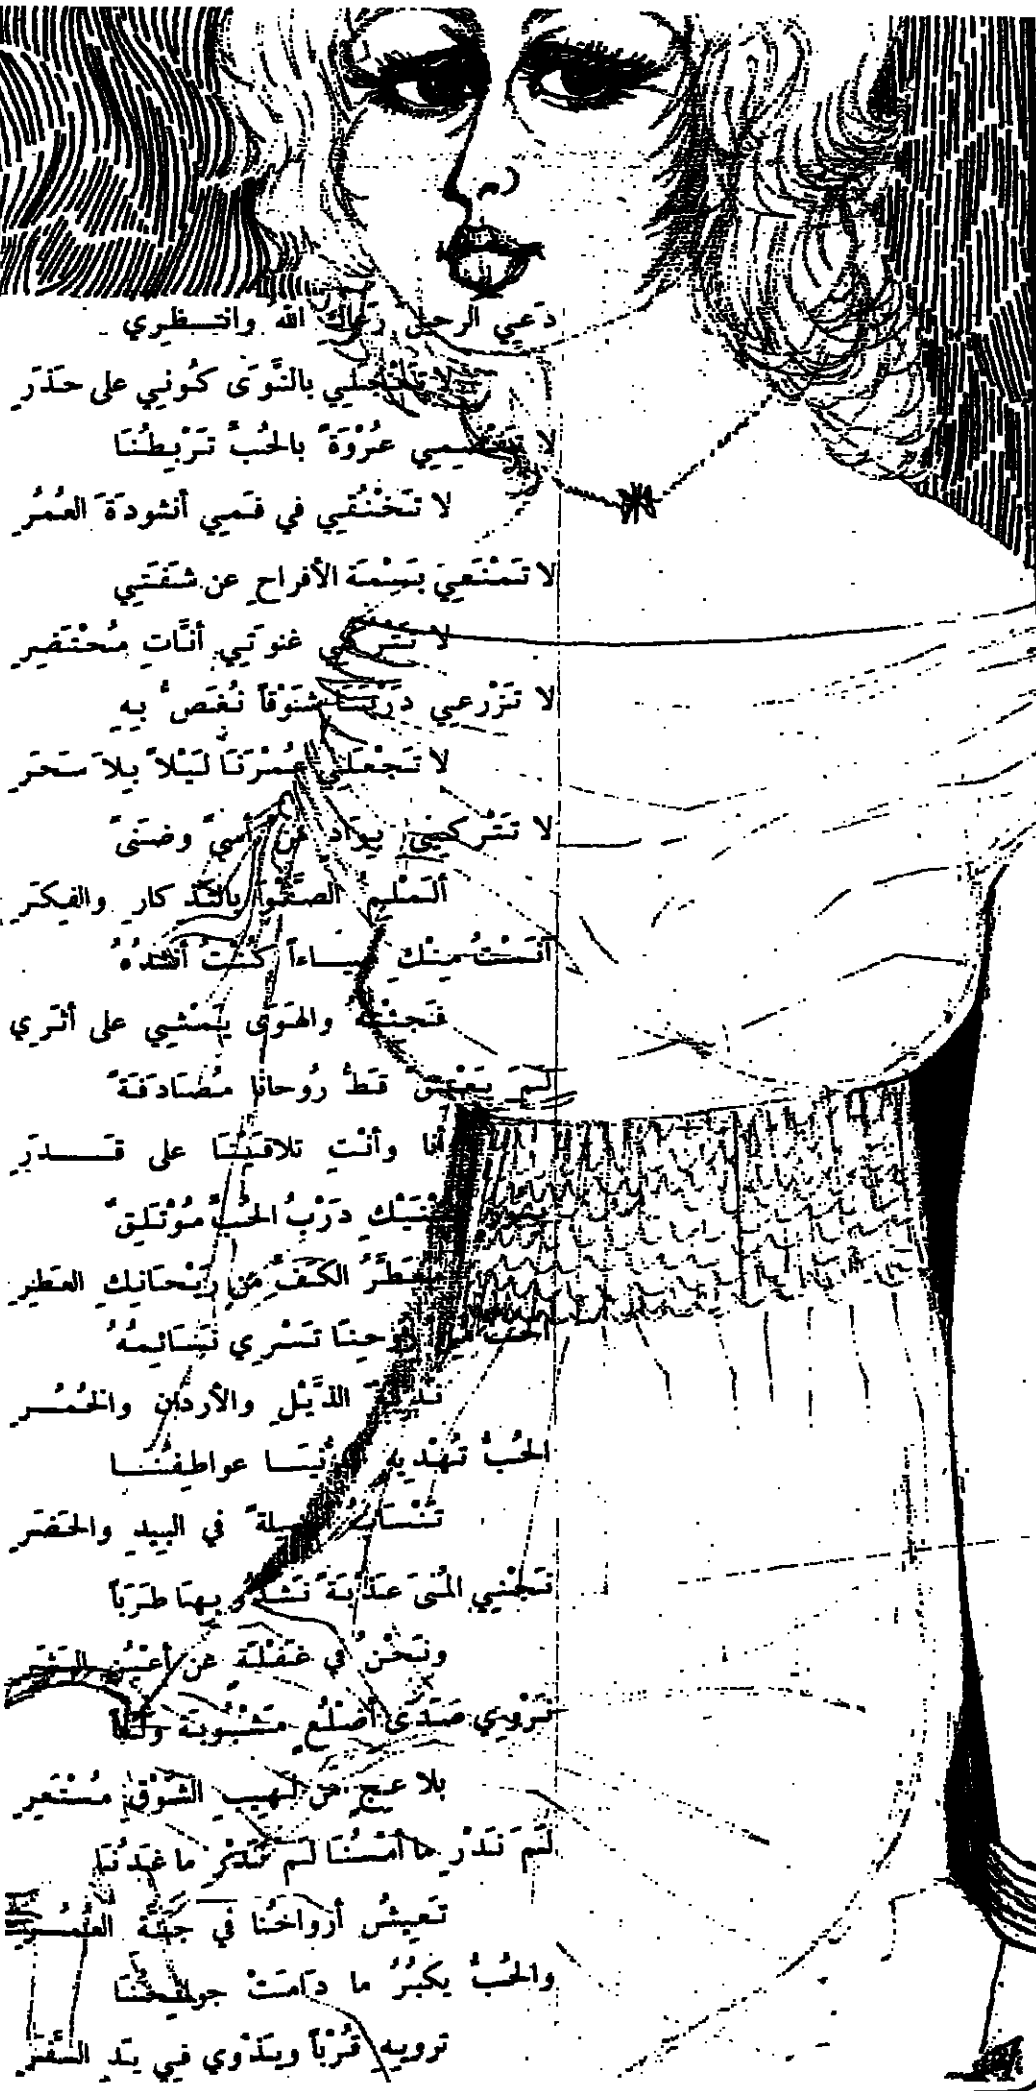 دَعي الرحيل رَعاك الله وانتـــظري
لا تَعْجَلي بالنَّوَى كُوني على حَذَرِ
لا تَفْصِمي عُرْوَةً بالحُبِّ تَرْبِطُنَا
لا تَخْنُقي في فَمي أنشودَةَ العُمُرِ
لا تَمْنَعي بَسْمَةَ الأفراحِ عن شَفَتي
لا تَتْركي غنوَتي أنَّاتِ مُحْتَضِرِ
لا تَزْرعي دَرْبَنَا شَوْقاً نُغَصُّ بهِ
لا تَجْعَلي عُمْرَنَا لَيْلاً بِلاَ سَحَرِ
لا تَتْركيني بوادٍ مِنْ أسىً وضَنىً
ألَمْلِمُ الصَّفْوَ بالتَّذكارِ والفِكَرِ
آنَسْتُ مِنْكِ ضِيَـــاءاً كُنْتُ أنشُدُهُ
فَجئتِهِ والهَوَى يَمْشي على أثَري
لَمْ يَعْبَقْ قَطُّ رُوحانا مُصَادَفَةً
أنا وأنْتِ تلاقَيْنَا على قَـــــدَرِ
دَرْبُ الحُبِّ مُؤْتَلِقٌ
مُعَطَّرُ الكَفِّ مِن رَيْحَانِكِ العَطِرِ
الحُبُّ مِنْ رُوحِنَا تَسْري نَسَائِمُهُ
الذَّيْلِ والأردانِ والخُمُـــرِ
الحُبُّ تُهْديهِ عواطِفُنَـــا
تَنْسَابُ في البيدِ والحَضَرِ
تَجْني المُنى عَذْبَةً نَشْدُو بِهَا طَرَبَاً
ونَحْنُ في غَفْلَةٍ عَن أعْيُنِ البَشَرِ
نَرْوي صَدَى أضلُعٍ مَشْبُوبَةٍ وَلَهَاً
بلاعجٍ مِن لَهيبِ الشَّوْقِ مُسْتَعِرِ
لَمْ نَدْرِ ما أمْسُنَا لَمْ نَدْرِ ما غَدُنَا
تَعيشُ أرواحُنا في جَنَّةِ العُمُـــرِ
والحُبُّ يكبُرُ ما دَامَتْ جوانِحُنَا
ترويهِ قُرْبَاً ويَذْوي في يَدِ السَّفَرِ